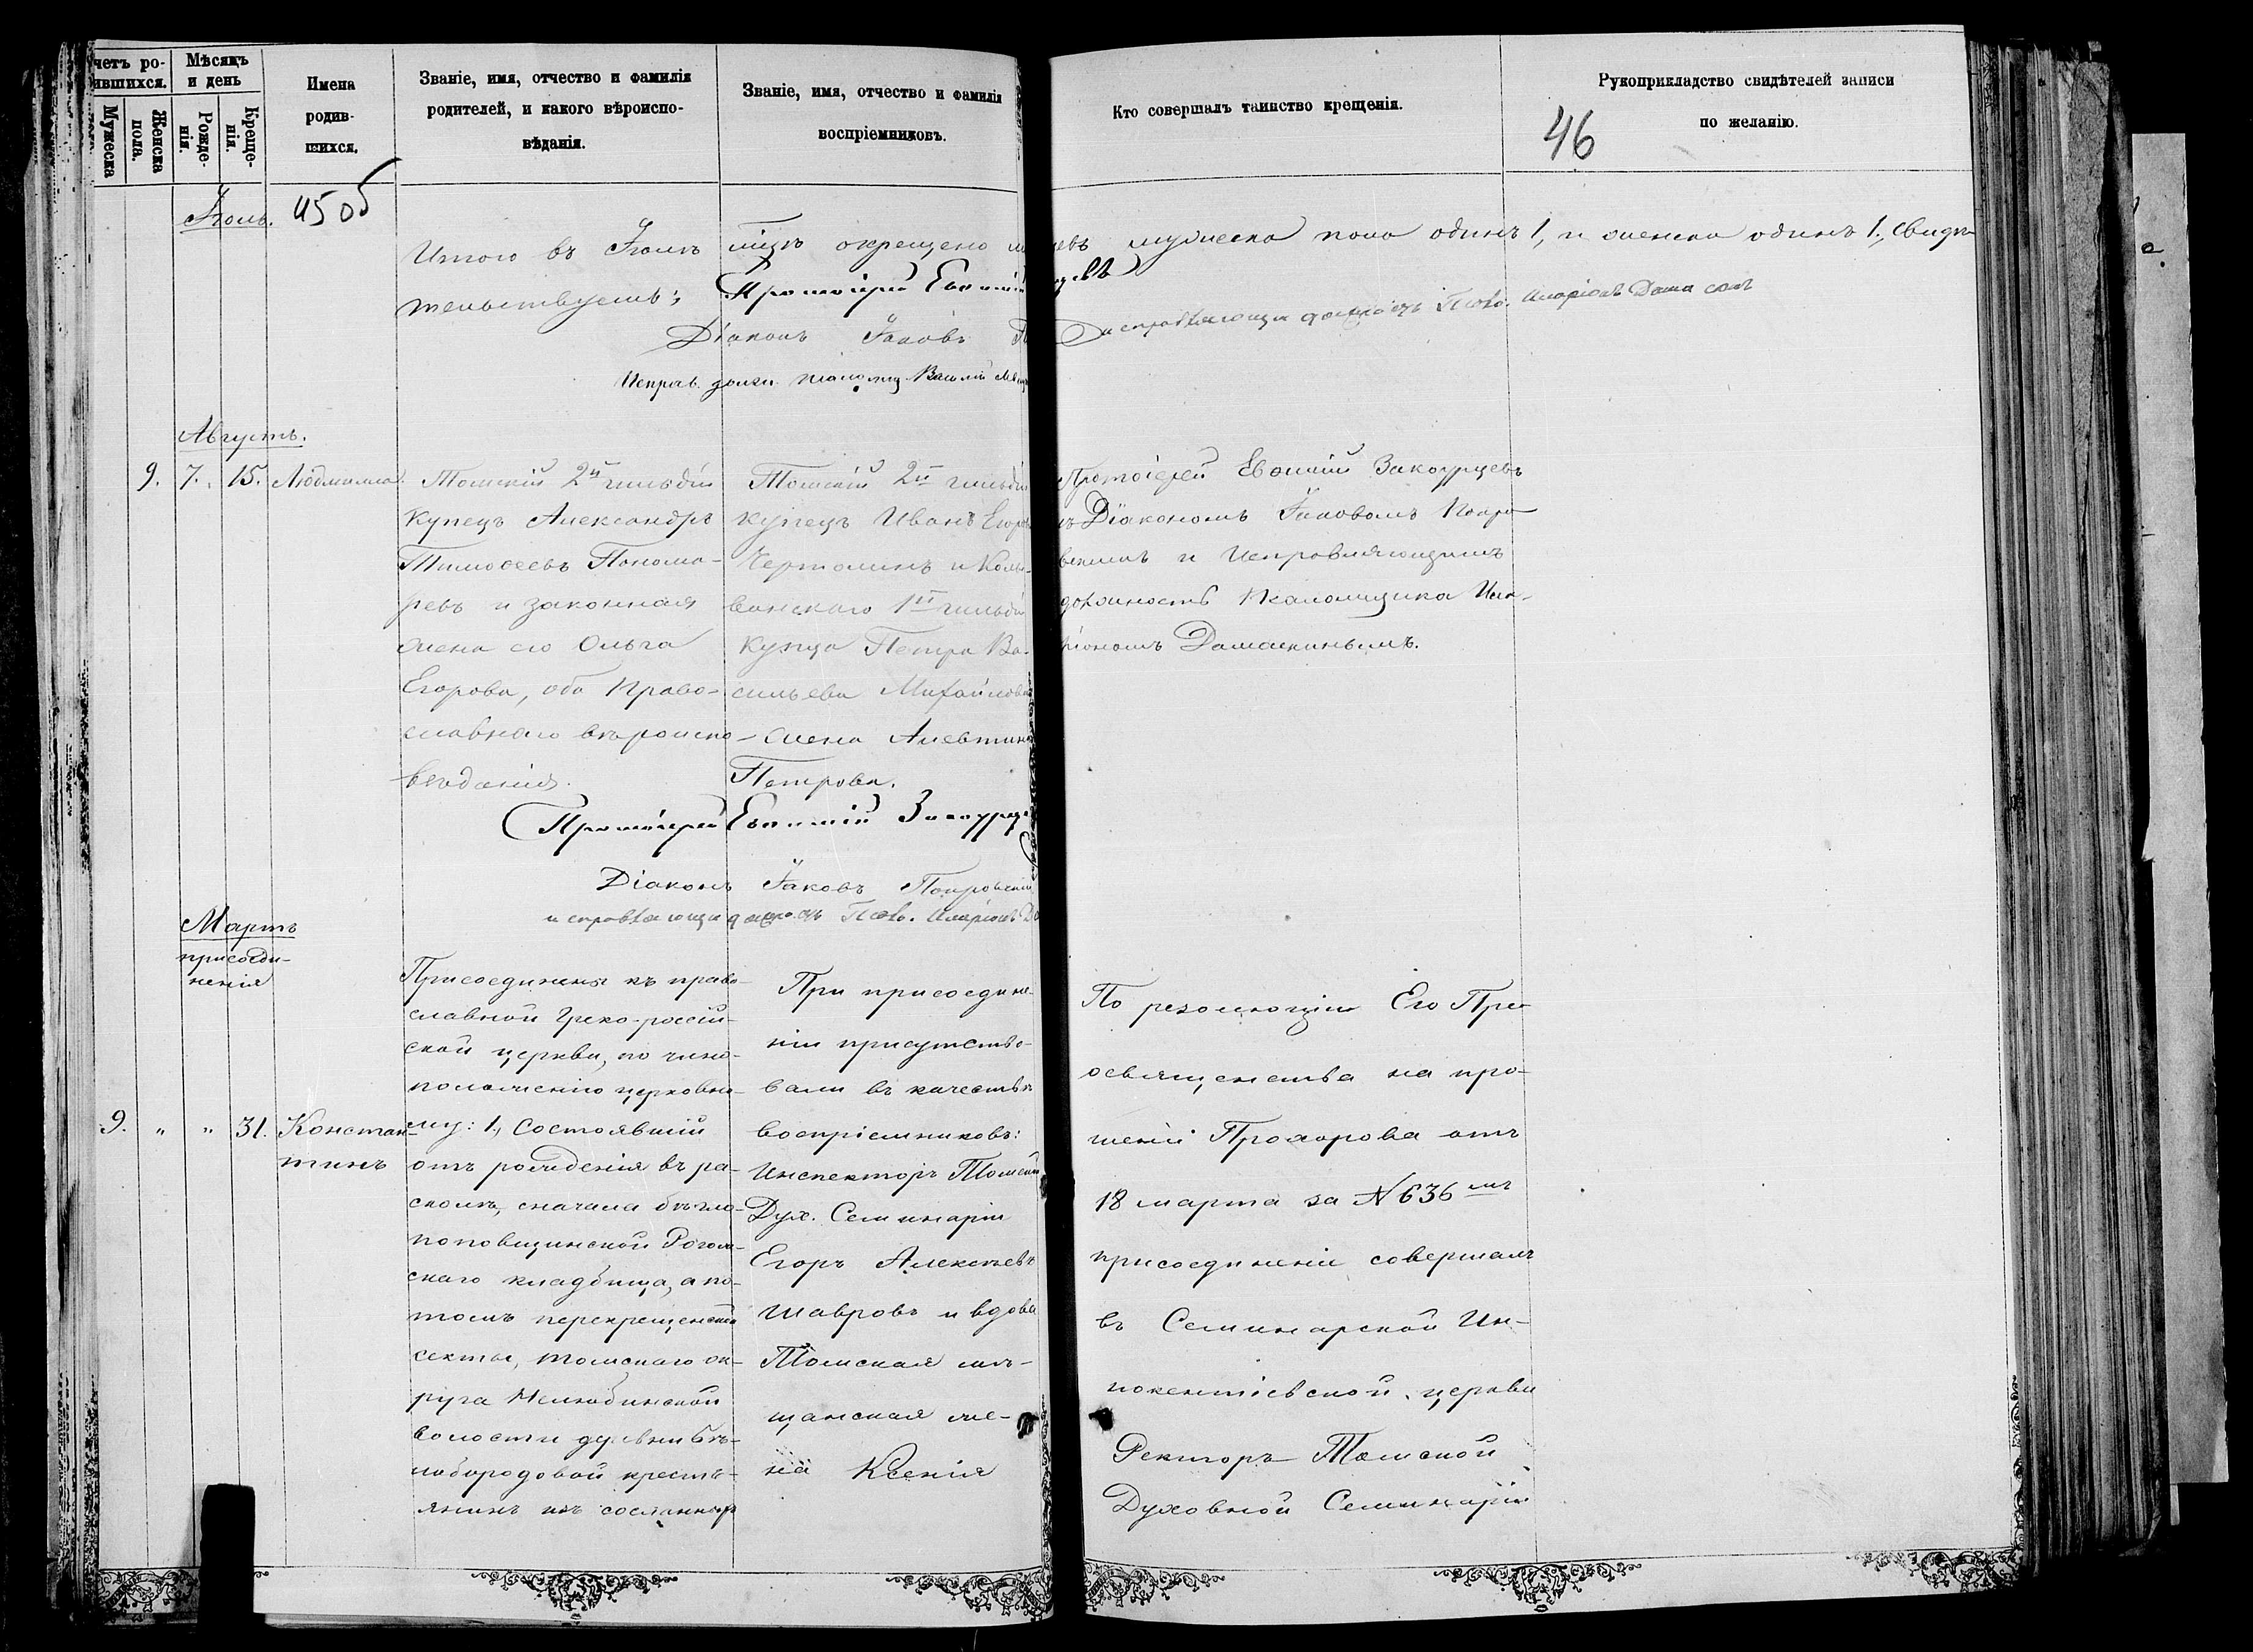 четъ ро-
ившихся.
Мужеска
Женска
пола.
Мѣсяцъ
и день
Рожде-
нія.
Креще-
нія.
Имена
родив-
шихся.
Званіе, имя, отчество и фамилія
родителей, и какого вѣроиспо-
вѣданія.
Званіе, имя, отчество и фамилія
воспріемниковъ.
Кто совершалъ таинство крещенія.
Рукоприкладство свидѣтелей записи
по желанію.
46
Іюль.
Итого въ Іюлѣ м҃цѣ окрещено мужеска пола одинъ 1, и женска одинъ 1, свидѣ-
тельствуемъ:
Протоіерей Евѳимій
Діаконъ Іаковъ
Исправляющій должность Псал. Иларіонъ Дамаскинъ
Августъ.
9. 7. 15. Людмила.
Томскій 2й гильдіи
Купецъ Александръ
Тимоѳеевъ Понома-
ревъ и законная
жена его Ольга
Егорова, оба Право-
славнаго вѣроиспо-
вѣданія.
Томскій 2й гильдіи
купецъ Иванъ Егоровъ
Чертолинъ и Колы-
ванскаго 1й гильдіи
Купца Петра Ва-
сильева Михайлова
жена Алевтина
Петрова.
Протоіерей Евѳимій Закоурцевъ
Діакономъ Іаковомъ Покро-
вскимъ и Исправляющимъ
должность Псаломщика Ила-
ріономъ Дамаскинымъ.
Протоіерей Евѳимій Закоурце
Діаконъ Іаковъ Покровскій
исправляющій должность Псал. Иларіонъ Да
Мартъ
присоеди-
ненія
9. „ „ 31. Констан-
тинъ
Присоединены къ право-
славной Греко-россій-
ской церкви, по чино-
положенію церковно-
му: 1., Состоявшій
отъ рожденія въ ра-
сколѣ, сначала бѣгло-
поповщинской Рогож-
скаго кладбища, а по-
томъ перекрещенской
секты, Томскаго ок-
руга Нелюбинской
волости деревни Бѣ-
лобородовой кресть-
янинъ изъ сосланныхъ
При присоедине-
ніи присутство-
вали въ качествѣ
воспріемниковъ:
Инспекторъ Томской
Дух. Семинаріи
Егоръ Алексѣевъ
Шавровъ и вдова
Томская мѣ-
щанская же-
на Ксенія
По резолюціи Его Пре-
освященства на про-
шеніи Прохорова отъ
18 марта за № 636мъ
присоединеніе совершалъ
въ Семинарской Ин-
нокентіевской церкви
Ректоръ Томской
Духовной Семинаріи